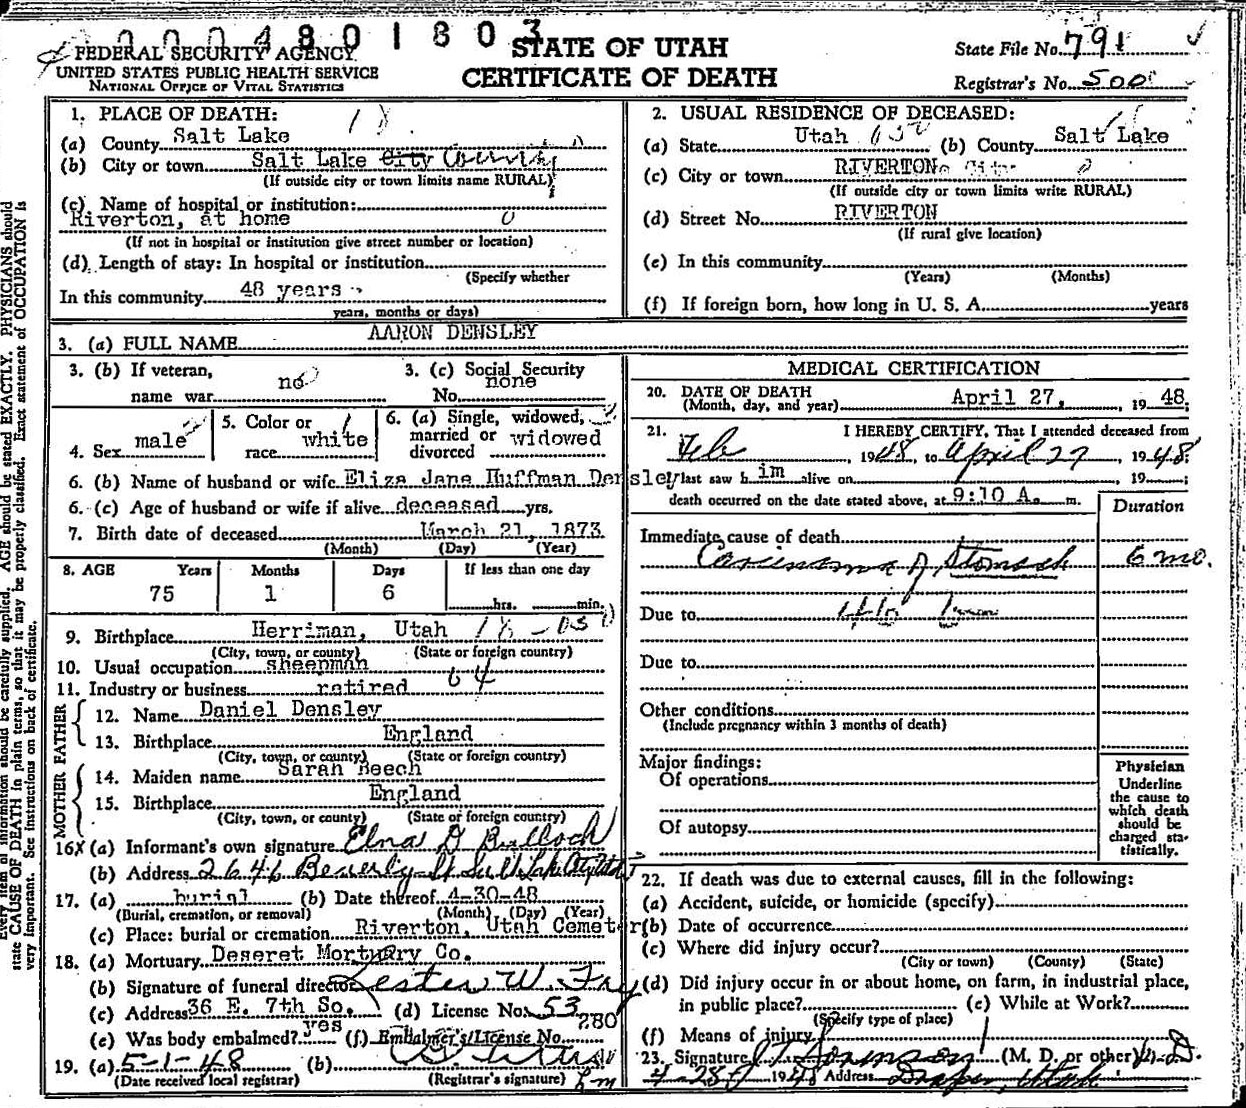 0004801803
FEDERAL SECURITY AGENCY
UNITED STATES PUBLIC HEALTH SERVICE
NATIONAL OFFICE OF VITAL STATISTICS
STATE OF UTAH
CERTIFICATE OF DEATH
State File No. 791
Registrar's No. 500
1. PLACE OF DEATH:
(a) County Salt Lake
(b) City or town Salt Lake City County
(If outside city or town limits name RURAL)
(c) Name of hospital or institution:
Riverton, at home 0
(If not in hospital or institution give street number or location)
(d) Length of stay: In hospital or institution
(Specify whether
In this community 48 years
years, months or days)
2. USUAL RESIDENCE OF DECEASED:
(a) State Utah (b) County Salt Lake
(c) City or town RIVERTON
(If outside city or town limits write RURAL)
(d) Street No. RIVERTON
(If rural give location)
(e) In this community
(Years) (Months)
(f) If foreign born, how long in U. S. A. years
3. (a) FULL NAME AARON DENSLEY
3. (b) If veteran,
name war no
3. (c) Social Security
No. none
4. Sex male
5. Color or
race white
6. (a) Single, widowed,
married or
divorced widowed
6. (b) Name of husband or wife Eliza Jane Huffman Densley
6. (c) Age of husband or wife if alive deceased yrs.
7. Birth date of deceased March 21, 1873
(Month) (Day) (Year)
8. AGE Years Months Days If less than one day
75 1 6 hrs. min.
9. Birthplace Herriman, Utah
(City, town, or county) (State or foreign country)
10. Usual occupation sheepman
11. Industry or business retired 64
FATHER
12. Name Daniel Densley
13. Birthplace England
(City, town, or county) (State or foreign country)
MOTHER
14. Maiden name Sarah Beech
15. Birthplace England
(City, town, or county) (State or foreign country)
16X (a) Informant's own signature Elna D Bulloch
(b) Address 2646 Beverly St Salt Lake City Utah
17. (a) burial (b) Date thereof 4-30-48
(Burial, cremation, or removal) (Month) (Day) (Year)
(c) Place: burial or cremation Riverton, Utah Cemeter
18. (a) Mortuary Deseret Mortuary Co.
(b) Signature of funeral director Lester W. Fry
(c) Address 36 E. 7th So. (d) License No. 53
(e) Was body embalmed? yes (f) Embalmer's License No. 280
19. (a) 5-1-48 (b)
(Date received local registrar) (Registrar's signature)
MEDICAL CERTIFICATION
20. DATE OF DEATH
(Month, day, and year) April 27, 1948
21. I HEREBY CERTIFY, That I attended deceased from
Feb, 1948, to April 27 1948;
I last saw him alive on , 19 ;
death occurred on the date stated above, at 9:10 A. m.
Duration
Immediate cause of death
Carcinoma of Stomach 6 mo.
Due to
Due to
Other conditions
(Include pregnancy within 3 months of death)
Major findings:
Of operations
Of autopsy
Physician
Underline
the cause to
which death
should be
charged sta-
tistically.
22. If death was due to external causes, fill in the following:
(a) Accident, suicide, or homicide (specify)
(b) Date of occurrence
(c) Where did injury occur?
(City or town) (County) (State)
(d) Did injury occur in or about home, on farm, in industrial place,
in public place? (e) While at Work?
(Specify type of place)
(f) Means of injury
23. Signature (M. D. or other) M.D.
4-28 1948 Address Draper, Utah
Every item of information should be carefully supplied. AGE should be stated EXACTLY. PHYSICIANS should
state CAUSE OF DEATH in plain terms, so that it may be properly classified. Exact statement of OCCUPATION is
very important. See instructions on back of certificate.